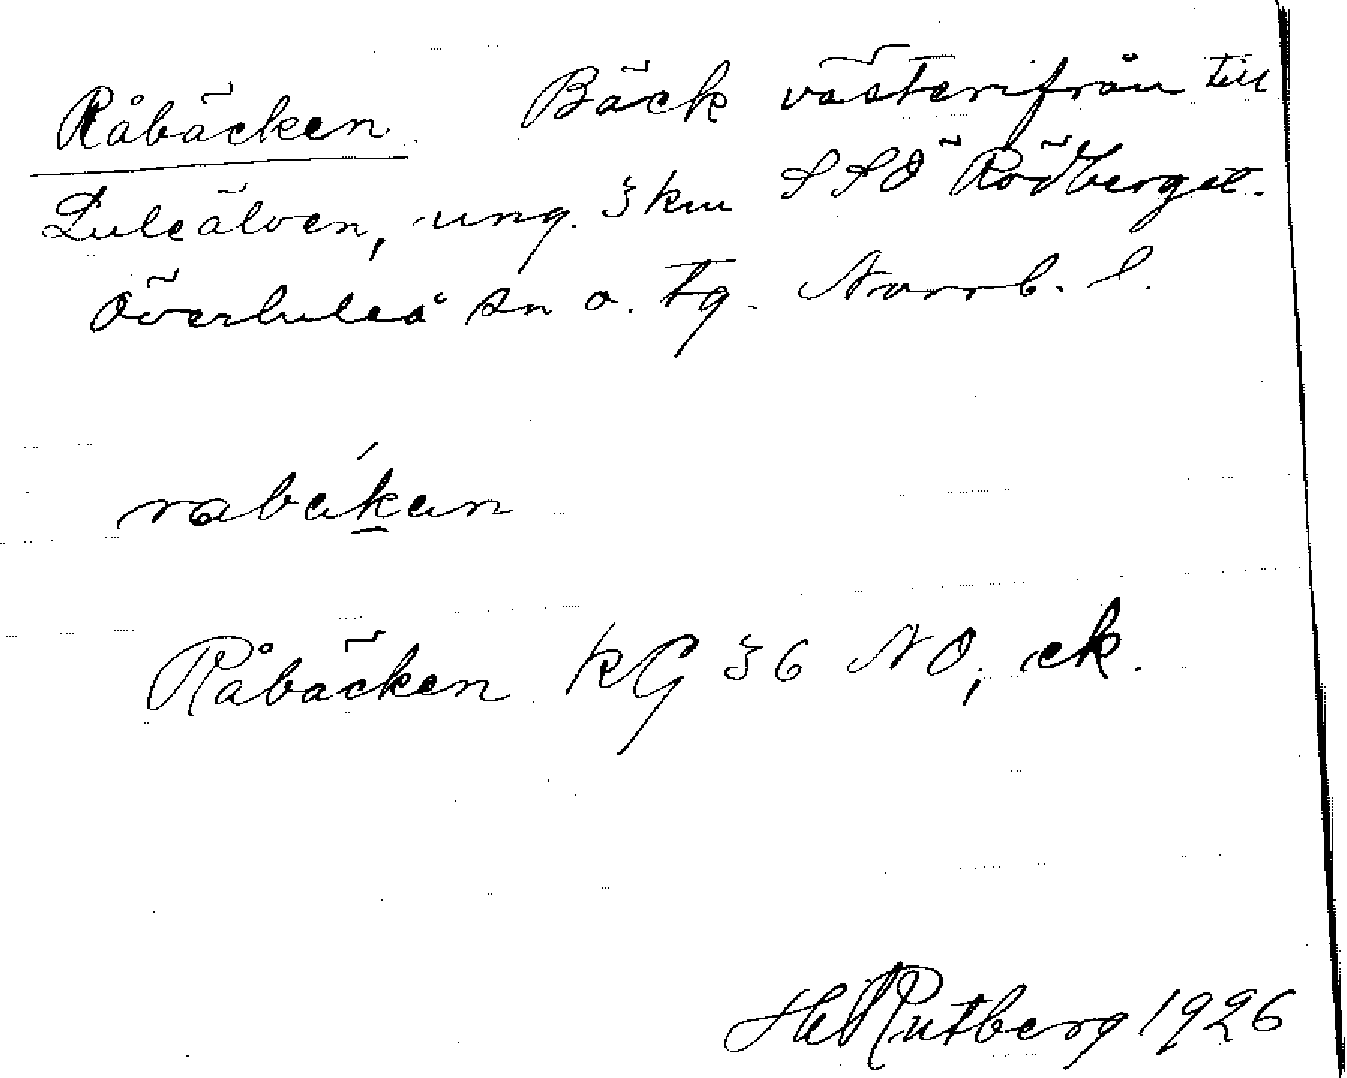 Råbäcken Bäck västerifrån till
Luleälven, ung. 3 km SSÖ Rödberget.
Överluleå sn o. tg. Norrb. l.
rabäkan
Råbäcken KG 36 NO, ek.
Rutberg 1926